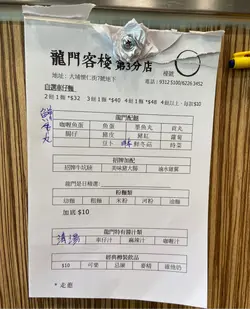 龍門客棧 第3分店
檯號
地址: 大埔懷仁街7號地下
電話: 9312 5100/6226 3452
自選車仔麵
2餸1麵 *$32 3餸1麵 *$40 4餸1麵 *$48 4餸以上, 每款$10
龍門配餸
咖喱魚蛋 魚蛋 墨魚丸 貢丸
腸仔 豬皮 豬紅 蘿蔔
豆卜 冬菇
招牌加配
招牌牛坑腩 美味豬大腸 滷水雞翼
龍門是日精選:
粉麵類
油麵 粗麵 米粉 河粉 幼麵
加底 $10
龍門特有醬汁類
清湯 車仔汁 麻辣汁 咖喱汁
經典樽裝飲品
$10 可樂 忌廉 維他奶
*走葱